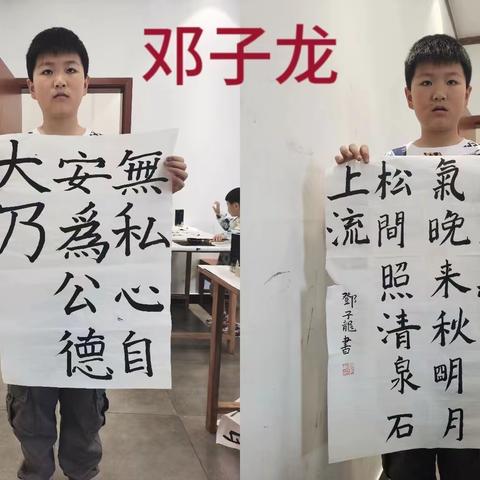 邓子龙
無私心自
安爲公德
大乃
氣晚来秋明月
松間照清泉石
上流
鄧子龍書